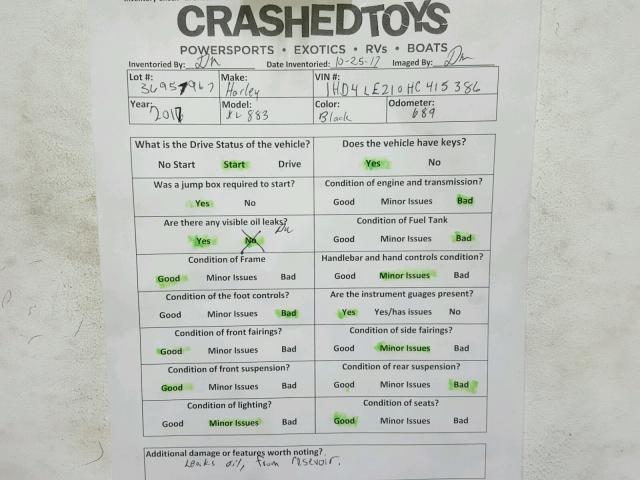 CRASHEDTOYS
POWERSPORTS • EXOTICS • RVs • BOATS
Inventoried By: Dn Date Inventoried: 10-25-17 Imaged By: Dn
Lot #: 36957967 Make: Harley VIN #: 1HD4LE210HC415386
Year: 2017 Model: XL 883 Color: Black Odometer: 689
What is the Drive Status of the vehicle? Does the vehicle have keys?
No Start Start Drive Yes No
Was a jump box required to start? Condition of engine and transmission?
Yes No Good Minor Issues Bad
Are there any visible oil leaks? Condition of Fuel Tank
Yes No Dn Good Minor Issues Bad
Condition of Frame Handlebar and hand controls condition?
Good Minor Issues Bad Good Minor Issues Bad
Condition of the foot controls? Are the instrument guages present?
Good Minor Issues Bad Yes Yes/has issues No
Condition of front fairings? Condition of side fairings?
Good Minor Issues Bad Good Minor Issues Bad
Condition of front suspension? Condition of rear suspension?
Good Minor Issues Bad Good Minor Issues Bad
Condition of lighting? Condition of seats?
Good Minor Issues Bad Good Minor Issues Bad
Additional damage or features worth noting?
Leaks oil, from resevoir.